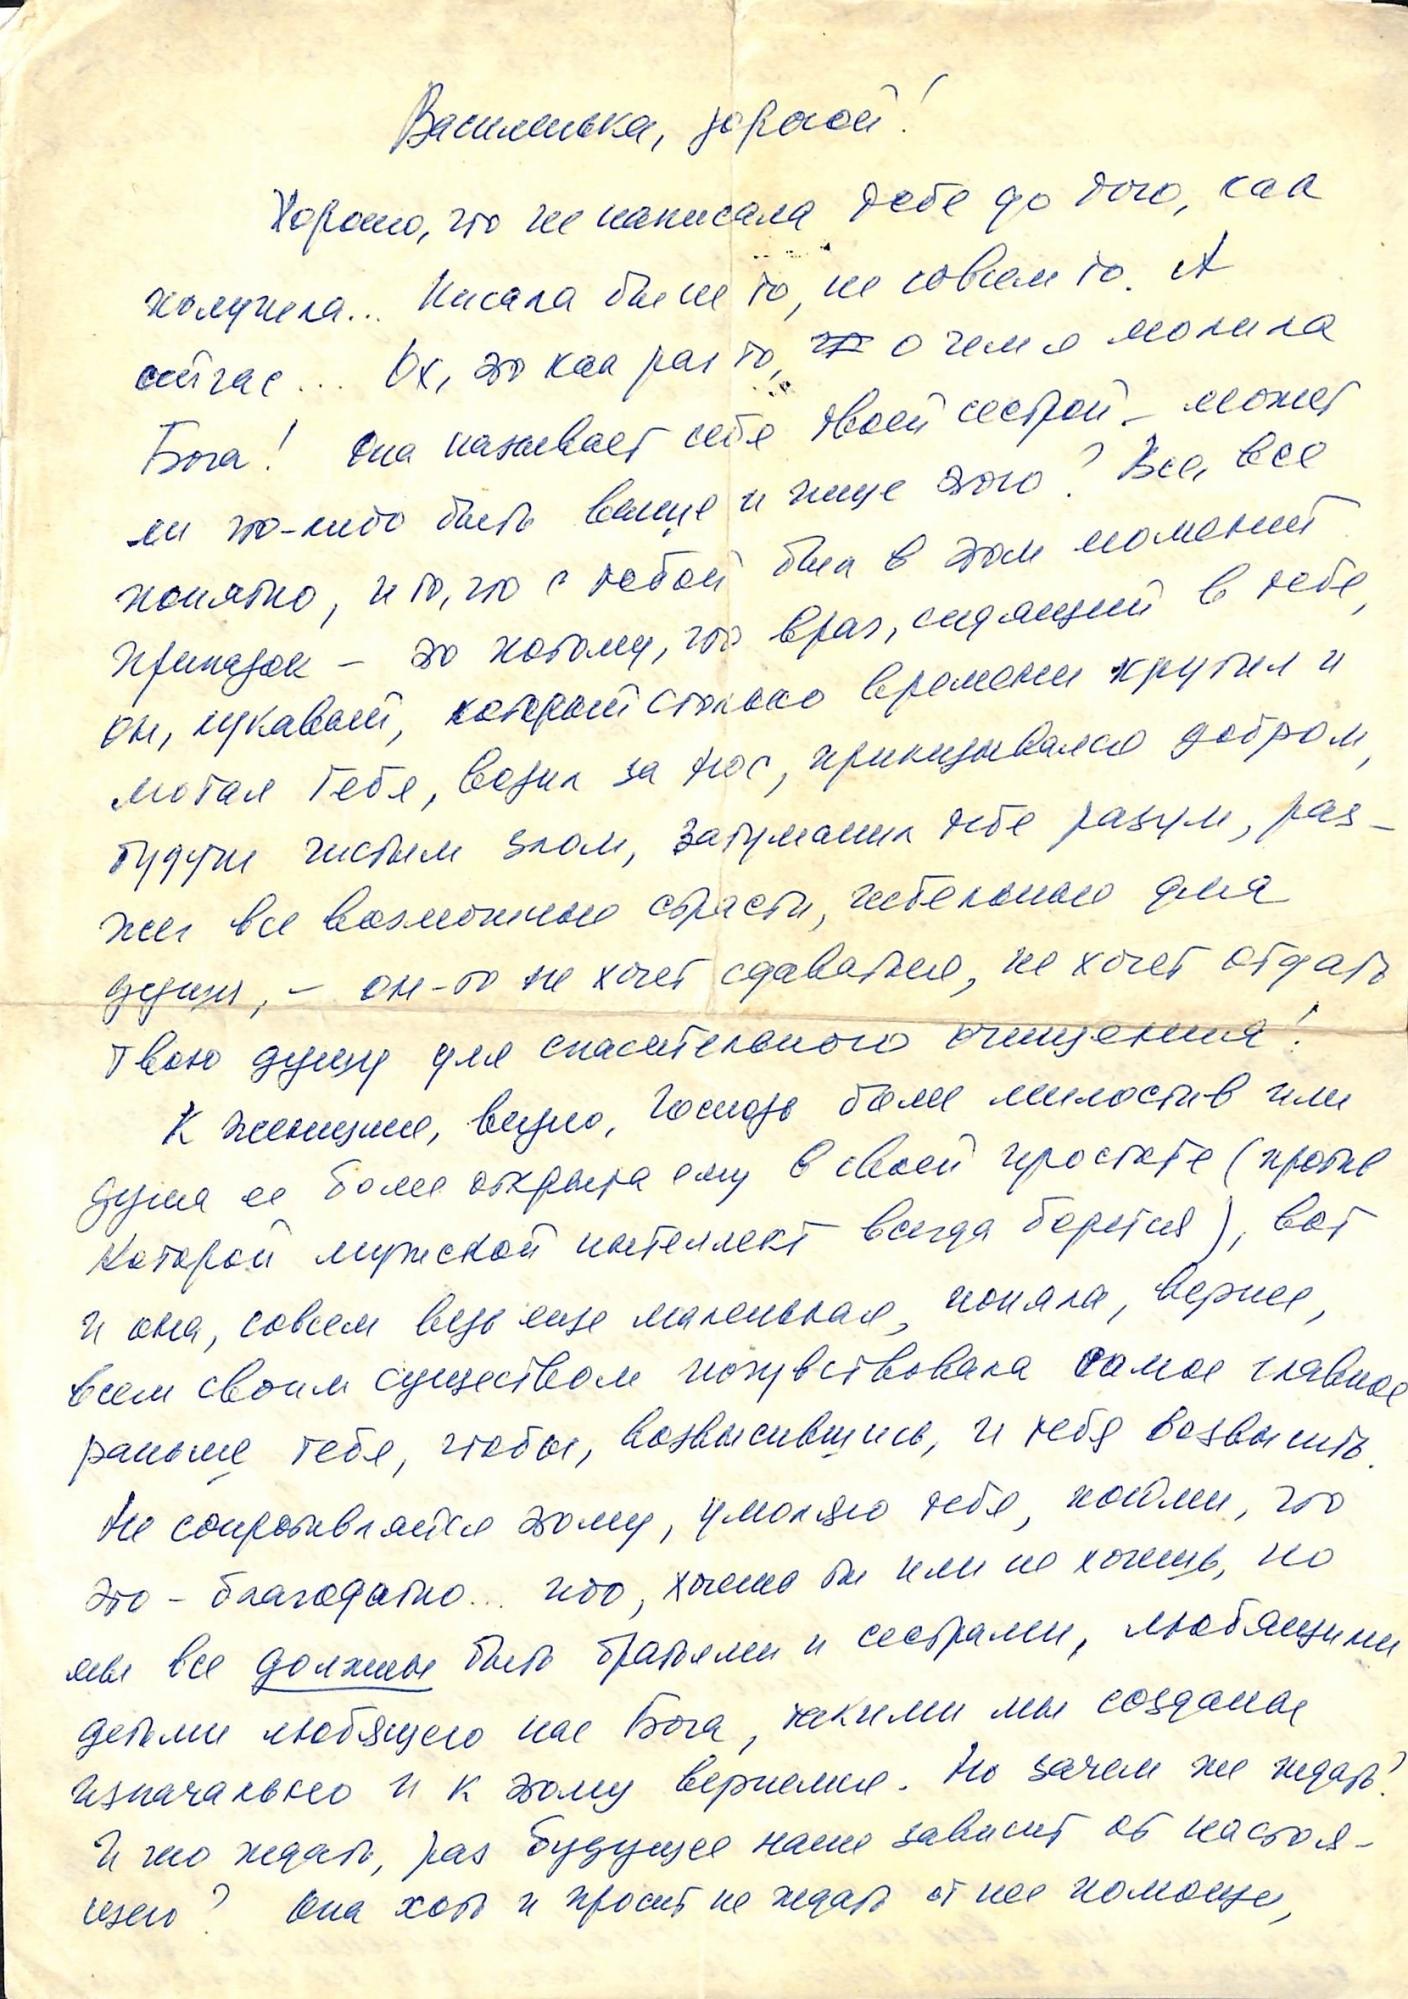 Василинька, дорогой!
Хорошо, что не написала тебе до того, как
получила... Писала бы не то, не совсем то. А
сейчас... Ох, это как раз то, о чем я молила
Бога! Она называет себя твоей сестрой – может
ли что-либо быть выше и чище этого? Все, все
понятно, и то, что с тобой был в этом момент
припадок – это потому, что враг, сидящий в тебе,
он, лукавый, который столько времени крутил и
мотал тебя, водил за нос, прикидывался добром,
будучи чистым злом, затуманил тебе разум, раз-
жег все возможные страсти, гибельные для
души, – он-то не хочет сдаваться, не хочет отдать
твою душу для спасительного очищения!
К женщине, видно, Господь более милостив или
душа ее более открыта ему в своей простоте (против
которой мужской интеллект всегда борется), вот
и она, совсем ведь еще маленькая, поняла, вернее,
всем своим существом почувствовала самое главное
раньше тебя, чтобы, возвысившись, и тебя возвысить.
Не сопротивляйся этому, умоляю тебя, пойми, что
это – благодатно... что, хочешь ты или не хочешь, но
мы все должны быть братьями и сестрами, любящими
детьми любящего нас Бога, такими мы созданы
изначально и к этому вернемся. Но зачем же ждать?
И что ждать, раз будущее наше зависит от настоя-
щего? Она хоть и просит не ждать от нее помощи,